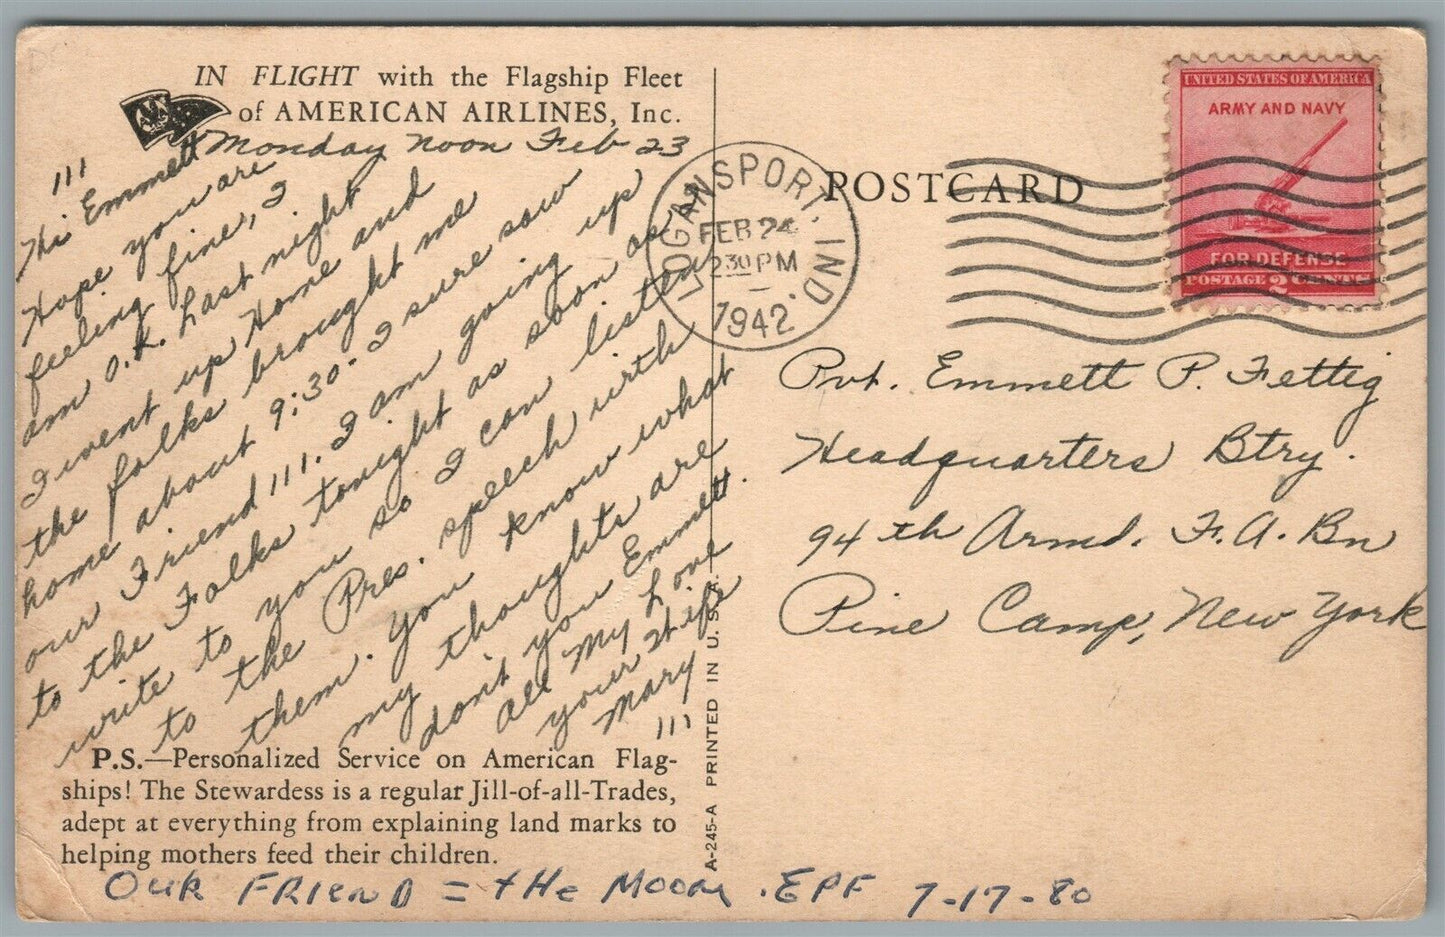 IN FLIGHT with the Flagship Fleet
of AMERICAN AIRLINES, Inc.
Monday Noon Feb 23
111
Hi Emmett
Hope you are
feeling fine, I
am O.K. Last night
I went up Home and
the folks brought me
home about 9:30. I sure saw
our Friend 111. I am going up
to the Folks tonight as soon as
write to you so I can listen
to the Pres. speech with
them. You know what
my thoughts are
don't you Emmett.
All My Love
your Wife
Mary
111
P.S.—Personalized Service on American Flag-
ships! The Stewardess is a regular Jill-of-all-Trades,
adept at everything from explaining land marks to
helping mothers feed their children.
OUR FRIEND = tHe MOON. EPF 7-17-80
A-245-A PRINTED IN U. S. A.
POSTCARD
LOGANSPORT, IND.
FEB 24
2 30 PM
1942
UNITED STATES OF AMERICA
ARMY AND NAVY
FOR DEFENSE
POSTAGE 2 CENTS
Pvt. Emmett P. Fettig
Headquarters Btry.
94th Armd. F.A. Bn
Pine Camp, New York